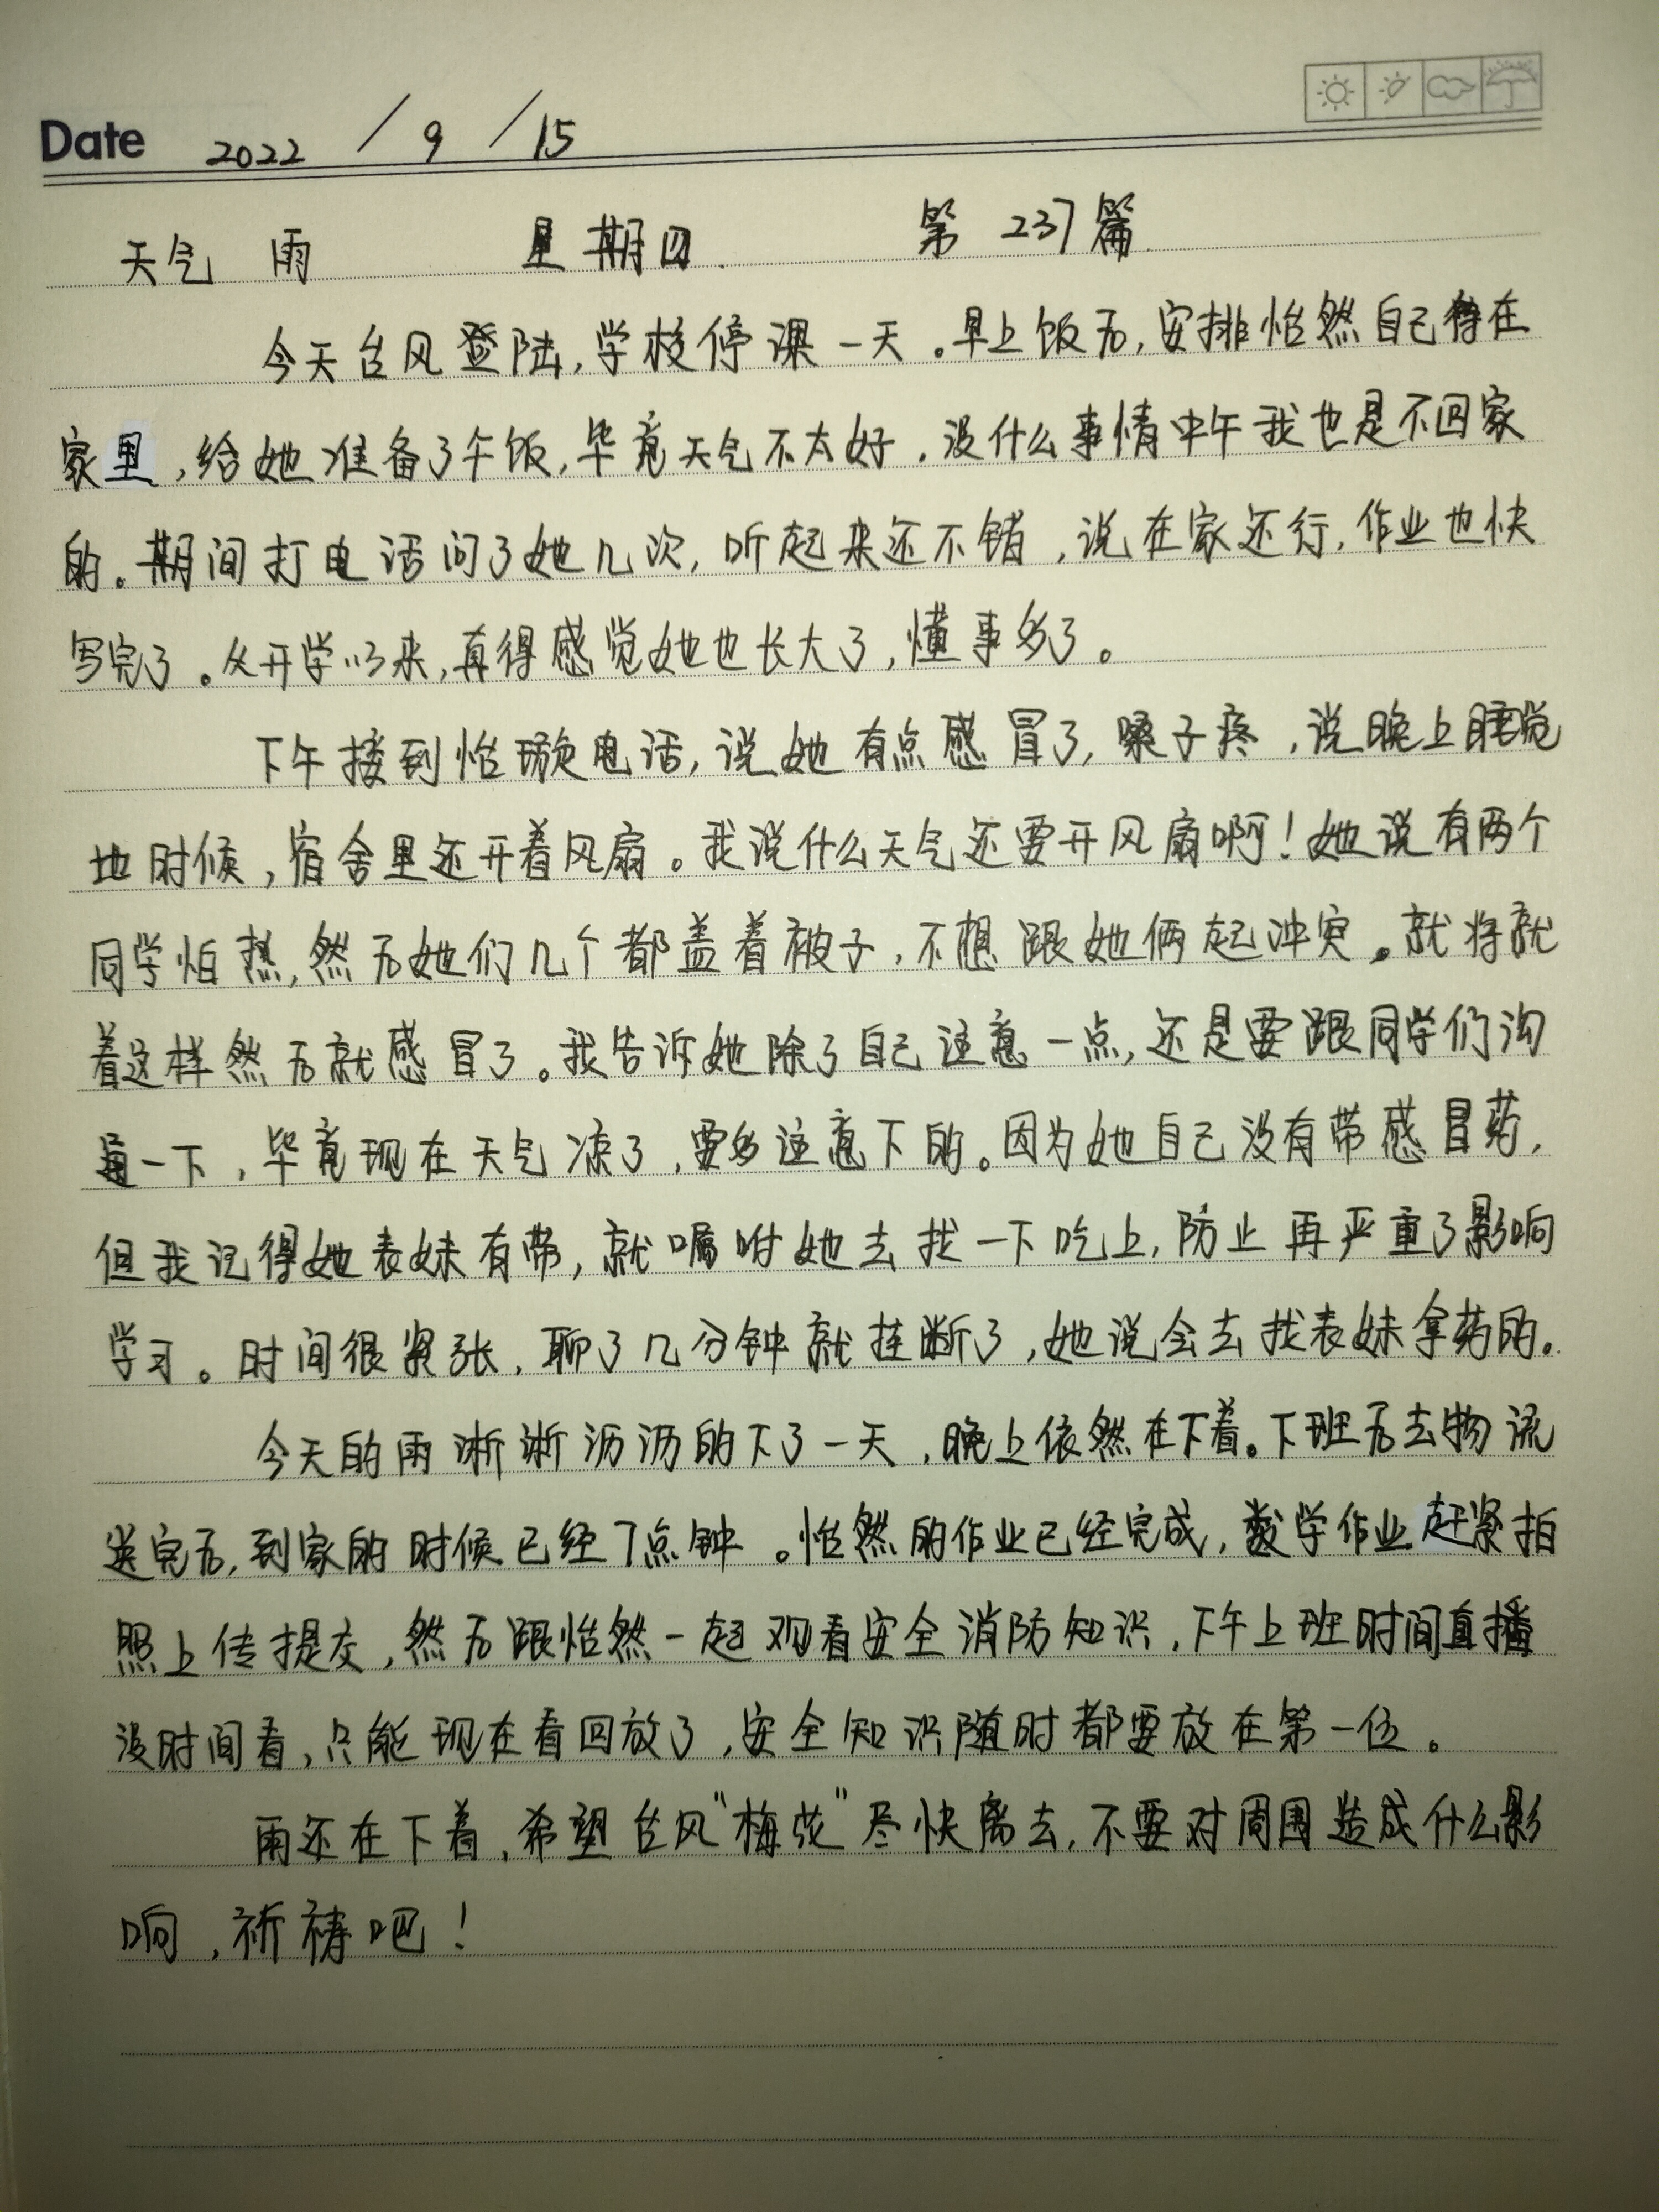 Date 2022 / 9 / 15
天气 雨 星期四. 第 237 篇
今天台风登陆,学校停课一天。早上饭后,安排怡然自己待在
家里,给她准备了午饭,毕竟天气不太好,没什么事情中午我也是不回家
的。期间打电话问了她几次,听起来还不错,说在家还行,作业也快
写完了。从开学以来,真得感觉她也长大了,懂事多了。
下午接到怡璇电话,说她有点感冒了,嗓子疼,说晚上睡觉
地时候,宿舍里还开着风扇。我说什么天气还要开风扇啊!她说有两个
同学怕热,然后她们几个都盖着被子,不想跟她俩起冲突。就将就
着这样然后就感冒了。我告诉她除了自己注意一点,还是要跟同学们沟
通一下,毕竟现在天气凉了,要多注意下的。因为她自己没有带感冒药,
但我记得她表妹有带,就嘱咐她去找一下吃上,防止再严重了影响
学习。时间很紧张,聊了几分钟就挂断了,她说会去找表妹拿药的。
今天的雨淅淅沥沥的下了一天,晚上依然在下着。下班后去物流
送完后,到家的时候已经7点钟。怡然的作业已经完成,数学作业赶紧拍
照上传提交,然后跟怡然一起观看安全消防知识,下午上班时间直播
没时间看,只能现在看回放了,安全知识随时都要放在第一位。
雨还在下着,希望台风"梅花"尽快离去,不要对周围造成什么影
响,祈祷吧!